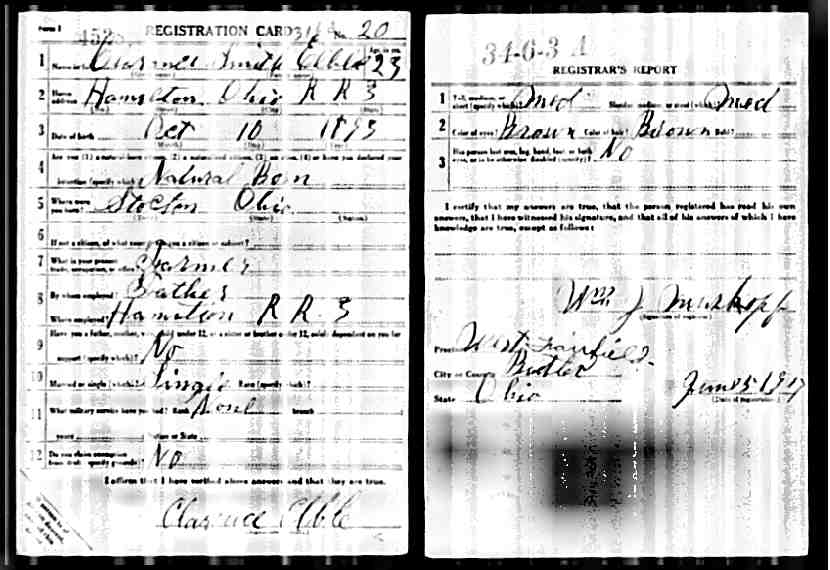 Form 1 4525 REGISTRATION CARD No. 20
1 Clarence Smith Elble Age, in yrs. 23
2 Home address Hamilton Ohio R R 3
3 Date of birth Oct 10 1893
(Month) (Day) (Year)
4 Are you (1) a natural-born citizen, (2) a naturalized citizen, (3) an alien, (4) or have you declared your
intention (specify which)? Natural Born
5 Where were you born? Stockton Ohio
(Town) (State) (Nation)
6 If not a citizen, of what country are you a citizen or subject?
7 What is your present trade, occupation, or office? Farmer
8 By whom employed? Father
Where employed? Hamilton R R. 3
9 Have you a father, mother, wife, child under 12, or a sister or brother under 12, solely dependent on you for
support (specify which)? No
10 Married or single (which)? Single Race (specify which)?
11 What military service have you had? Rank None branch
years Nation or State
12 Do you claim exemption from draft (specify grounds)? No
I affirm that I have verified above answers and that they are true.
Clarence Elble
34-6-3 A
REGISTRAR'S REPORT
1 Tall, medium, or short (specify which)? Med Slender, medium, or stout (which)? Med
2 Color of eyes? Brown Color of hair? Brown Bald?
3 Has person lost arm, leg, hand, foot, or both eyes, or is he otherwise disabled (specify)? No
I certify that my answers are true, that the person registered has read his own
answers, that I have witnessed his signature, and that all of his answers of which I have
knowledge are true, except as follows:
Wm J Muskopf
(Signature of registrar)
Precinct West Fairfield
City or County Butler
State Ohio June 5 1917
(Date of registration)